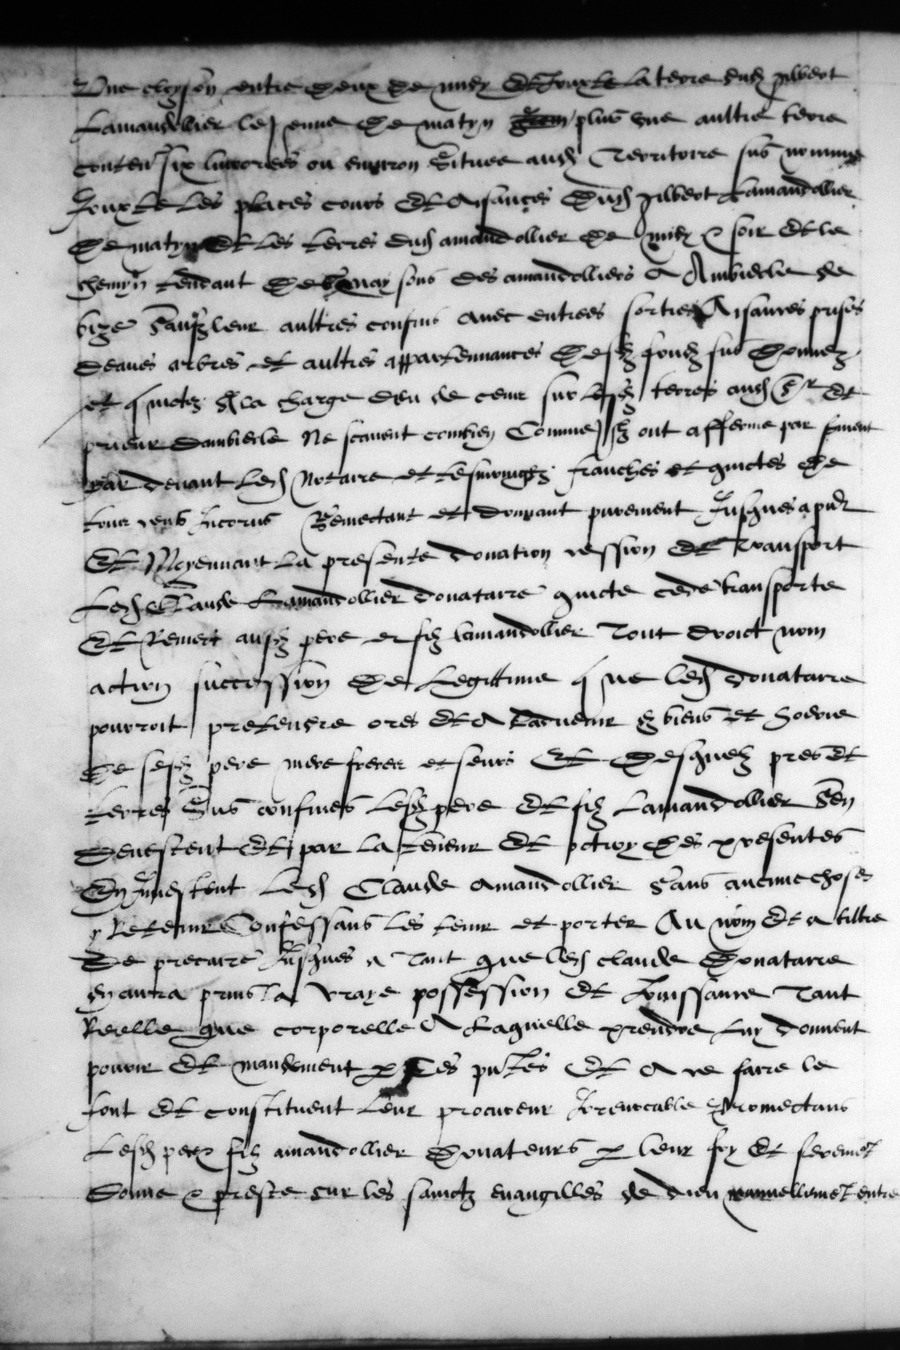 Une cloyson entre deux de midy Et Jouxte la terre dud Jilbert
Lamandollier le Jeune de matyn plus une aultre terre
conten six livorees ou environ Situee aud Territoire sus nomme
Jouxte les places cours Et Aisances Dud Jilbert Lamandollier
De matyn Et les terres dud amandollier de midy & soir Et le
chemyn tendant de sous des amandolliers A Ambierle de
bize Saufz leur aultres confins avec entrees sorties Aisances prises
deaues arbres et aultres appartennances Desd fondz sus Donnez
et quictez la charge deu de cens sur lesd terres aud Sr Et
prieur Dambierle Ne scavent combien Comme Ilz ont afferme par serment
par devant led Notaire et tesmoingz franches et quictes de
tous Remectant et donnant purement Jusques a pnt
Et Moyennant La presente donation cession Et transport
Led Claude Lamandollier donataire quicte cede transporte
Et Remect ausd pere et filz lamandollier Tout droict nom
action succession De Legittime que led donataire
pourroit pretendre ores Et A Ladvenir es biens et hoirie
De sesd pere mere freres et seurs Et Desquelz pres Et
terres Sus confines Lesd pere Et filz Lamandollier Sen
Devestent Et par la teneur Et octroy des presentes
En Investent Led Claude amandollier Sans aucune chose
y Retenir Confessans les tenir et porter Au nom Et a tiltre
De precaire Jusques a Tant que led claude Donataire
en aura prins la vraye possession Et Jouissance Tant
Reelle que corporelle A Laquelle prendre luy donnent
pouvoir Et mandement p Ces pntes Et A ce faire le
font Et constituent leur procureur Irrevocable Promectans
Lesd pere & filz amandollier Donateurs p leur foy Et seremet
Donne & preste sur les sainctz evangilles de dieu entre